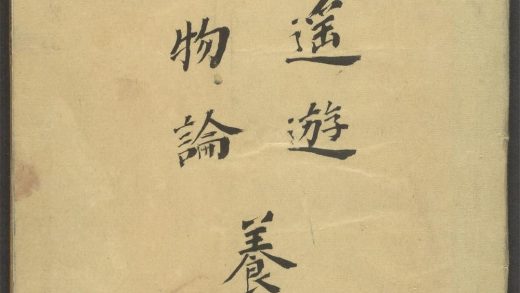 遥遊
物論
養